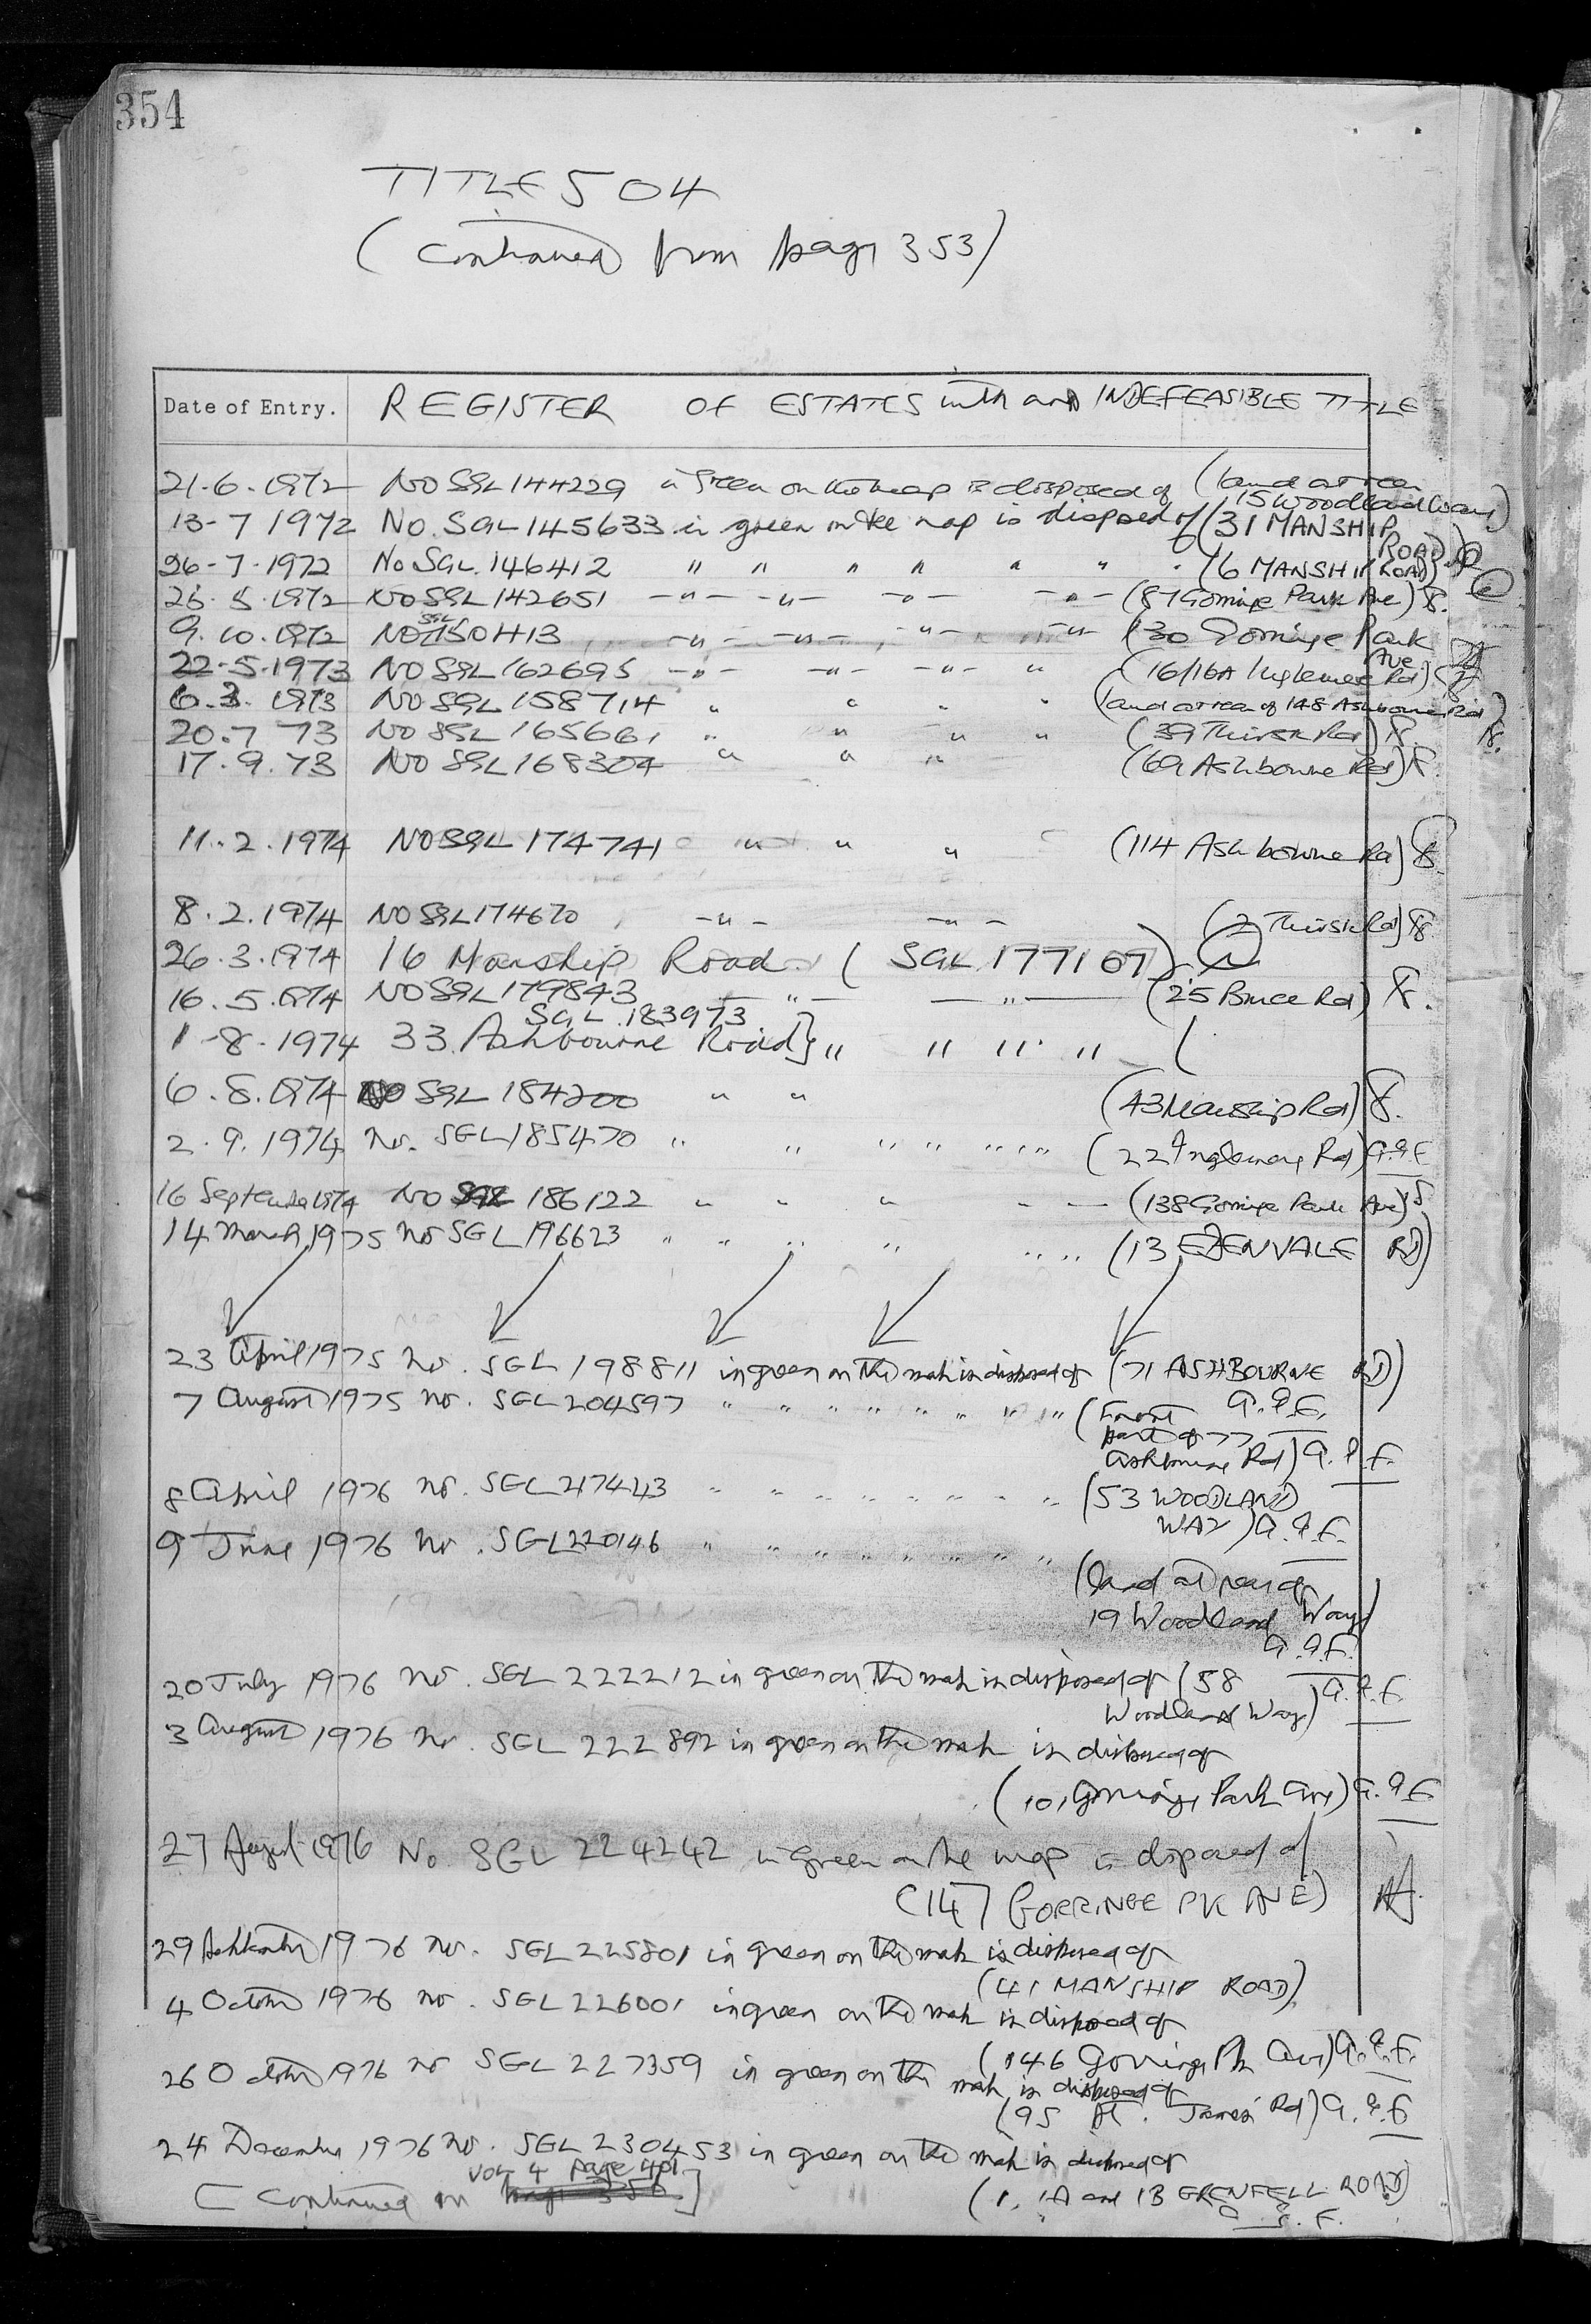 354
TITLE 504
(Continued from page 353)
Date of Entry. REGISTER OF ESTATES with an INDEFEASIBLE TITLE
21.6.1972 NO SGL 144229 in green on the map is disposed of (land at rear 15 Woodland Way)
13-7 1972 No. SGL 145633 in green on the map is disposed of (31 MANSHIP ROAD)
26-7-1972 No SGL. 146412 " " " " " " (6 MANSHIP ROAD)
26.5.1972 NO SGL 142651 -"- -"- -"- -"- (87 Gorringe Park Ave)
9.10.1972 NO SGL 150413 -"- -"- -"- -"- (30 Gorringe Park Ave
22-5-1973 NO SGL 162695 -"- -"- -"- " (16/16A Inglemere Rd)
6.3.1973 NO SGL 158714 " " " " (land at rear of 148 Ashbourne Rd)
20.7 73 NO SGL 165661 " " " " (39 Thirsk Rd)
17.9.73 NO SGL 168304 " " " (69 Ashbourne Rd)
11.2.1974 NO SGL 174741 " " " (114 Ashbourne Rd)
8.2.1974 NO SGL 174670 -"- -"- (2 Thirsk Rd)
26.3.1974 16 Manship Road (SGL 177107)
16.5.1974 NO SGL 179843 -"- -"- (25 Bruce Rd)
SGL 183973
1-8-1974 33 Ashbourne Road } " " " " (
6.8.1974 NO SGL 184200 " " (43 Manship Rd)
2.9.1974 No. SGL 185470 " " " " " " " (22 Inglemere Rd) a.g.E
16 September 1974 NO SGL 186122 " " " - - (138 Gorringe Park Ave)
14 March 1975 No SGL 196623 " " " " " " (13 EDENVALE RD)
23 April 1975 No. SGL 198811 in green on the map is disposed of (71 ASHBOURNE RD)
a.g.E.
7 August 1975 No. SGL 204597 " " " " " " " " (Front
part of 77
Ashbourne Rd) a.g.E.
8 April 1976 No. SGL 217443 " " " " " " " " (53 WOODLAND
WAY) a.g.E.
9 June 1976 No. SGL 220146 " " " " " " " "
(land at rear of
19 Woodland Way)
a.g.E.
20 July 1976 No. SGL 222212 in green on the map is disposed of (58
Woodland Way) a.g.E.
3 August 1976 No. SGL 222892 in green on the map is disposed of
(101 Gorringe Park Ave) a.g.E.
27 August 1976 No SGL 224242 in green on the map is disposed of
(147 GORRINGE PK AVE)
29 September 1976 No. SGL 225801 in green on the map is disposed of
(41 MANSHIP ROAD)
4 October 1976 No. SGL 226001 in green on the map is disposed of
(146 Gorringe Pk Ave) a.g.E.
26 October 1976 No SGL 227359 in green on the map is disposed of
(95 St. James' Rd) a.g.E
24 December 1976 No. SGL 230453 in green on the map is disposed of
(1, 1A and 1B GRENFELL ROAD)
a.g.E.
VOL 4 page 401
[Continued on page 356]